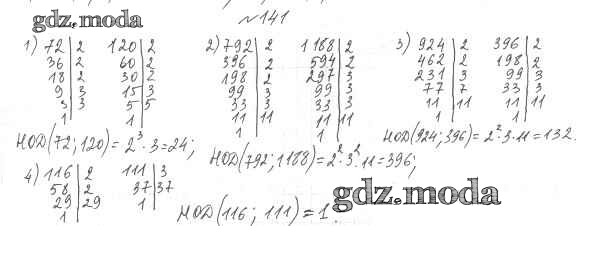 gdz.moda
№141
1) 72 | 2   120 | 2
36 | 2   60 | 2
18 | 2   30 | 2
9 | 3   15 | 3
3 | 3   5 | 5
1   1
НОД(72; 120) = 2³ · 3 = 24;
2) 792 | 2   1188 | 2
396 | 2   594 | 2
198 | 2   297 | 3
99 | 3   99 | 3
33 | 3   33 | 3
11 | 11   11 | 11
1   1
НОД(792; 1188) = 2² · 3² · 11 = 396;
3) 924 | 2   396 | 2
462 | 2   198 | 2
231 | 3   99 | 3
77 | 7   33 | 3
11 | 11   11 | 11
1   1
НОД(924; 396) = 2² · 3 · 11 = 132.
4) 116 | 2   111 | 3
58 | 2   37 | 37
29 | 29   1
1
НОД(116; 111) = 1.
gdz.moda